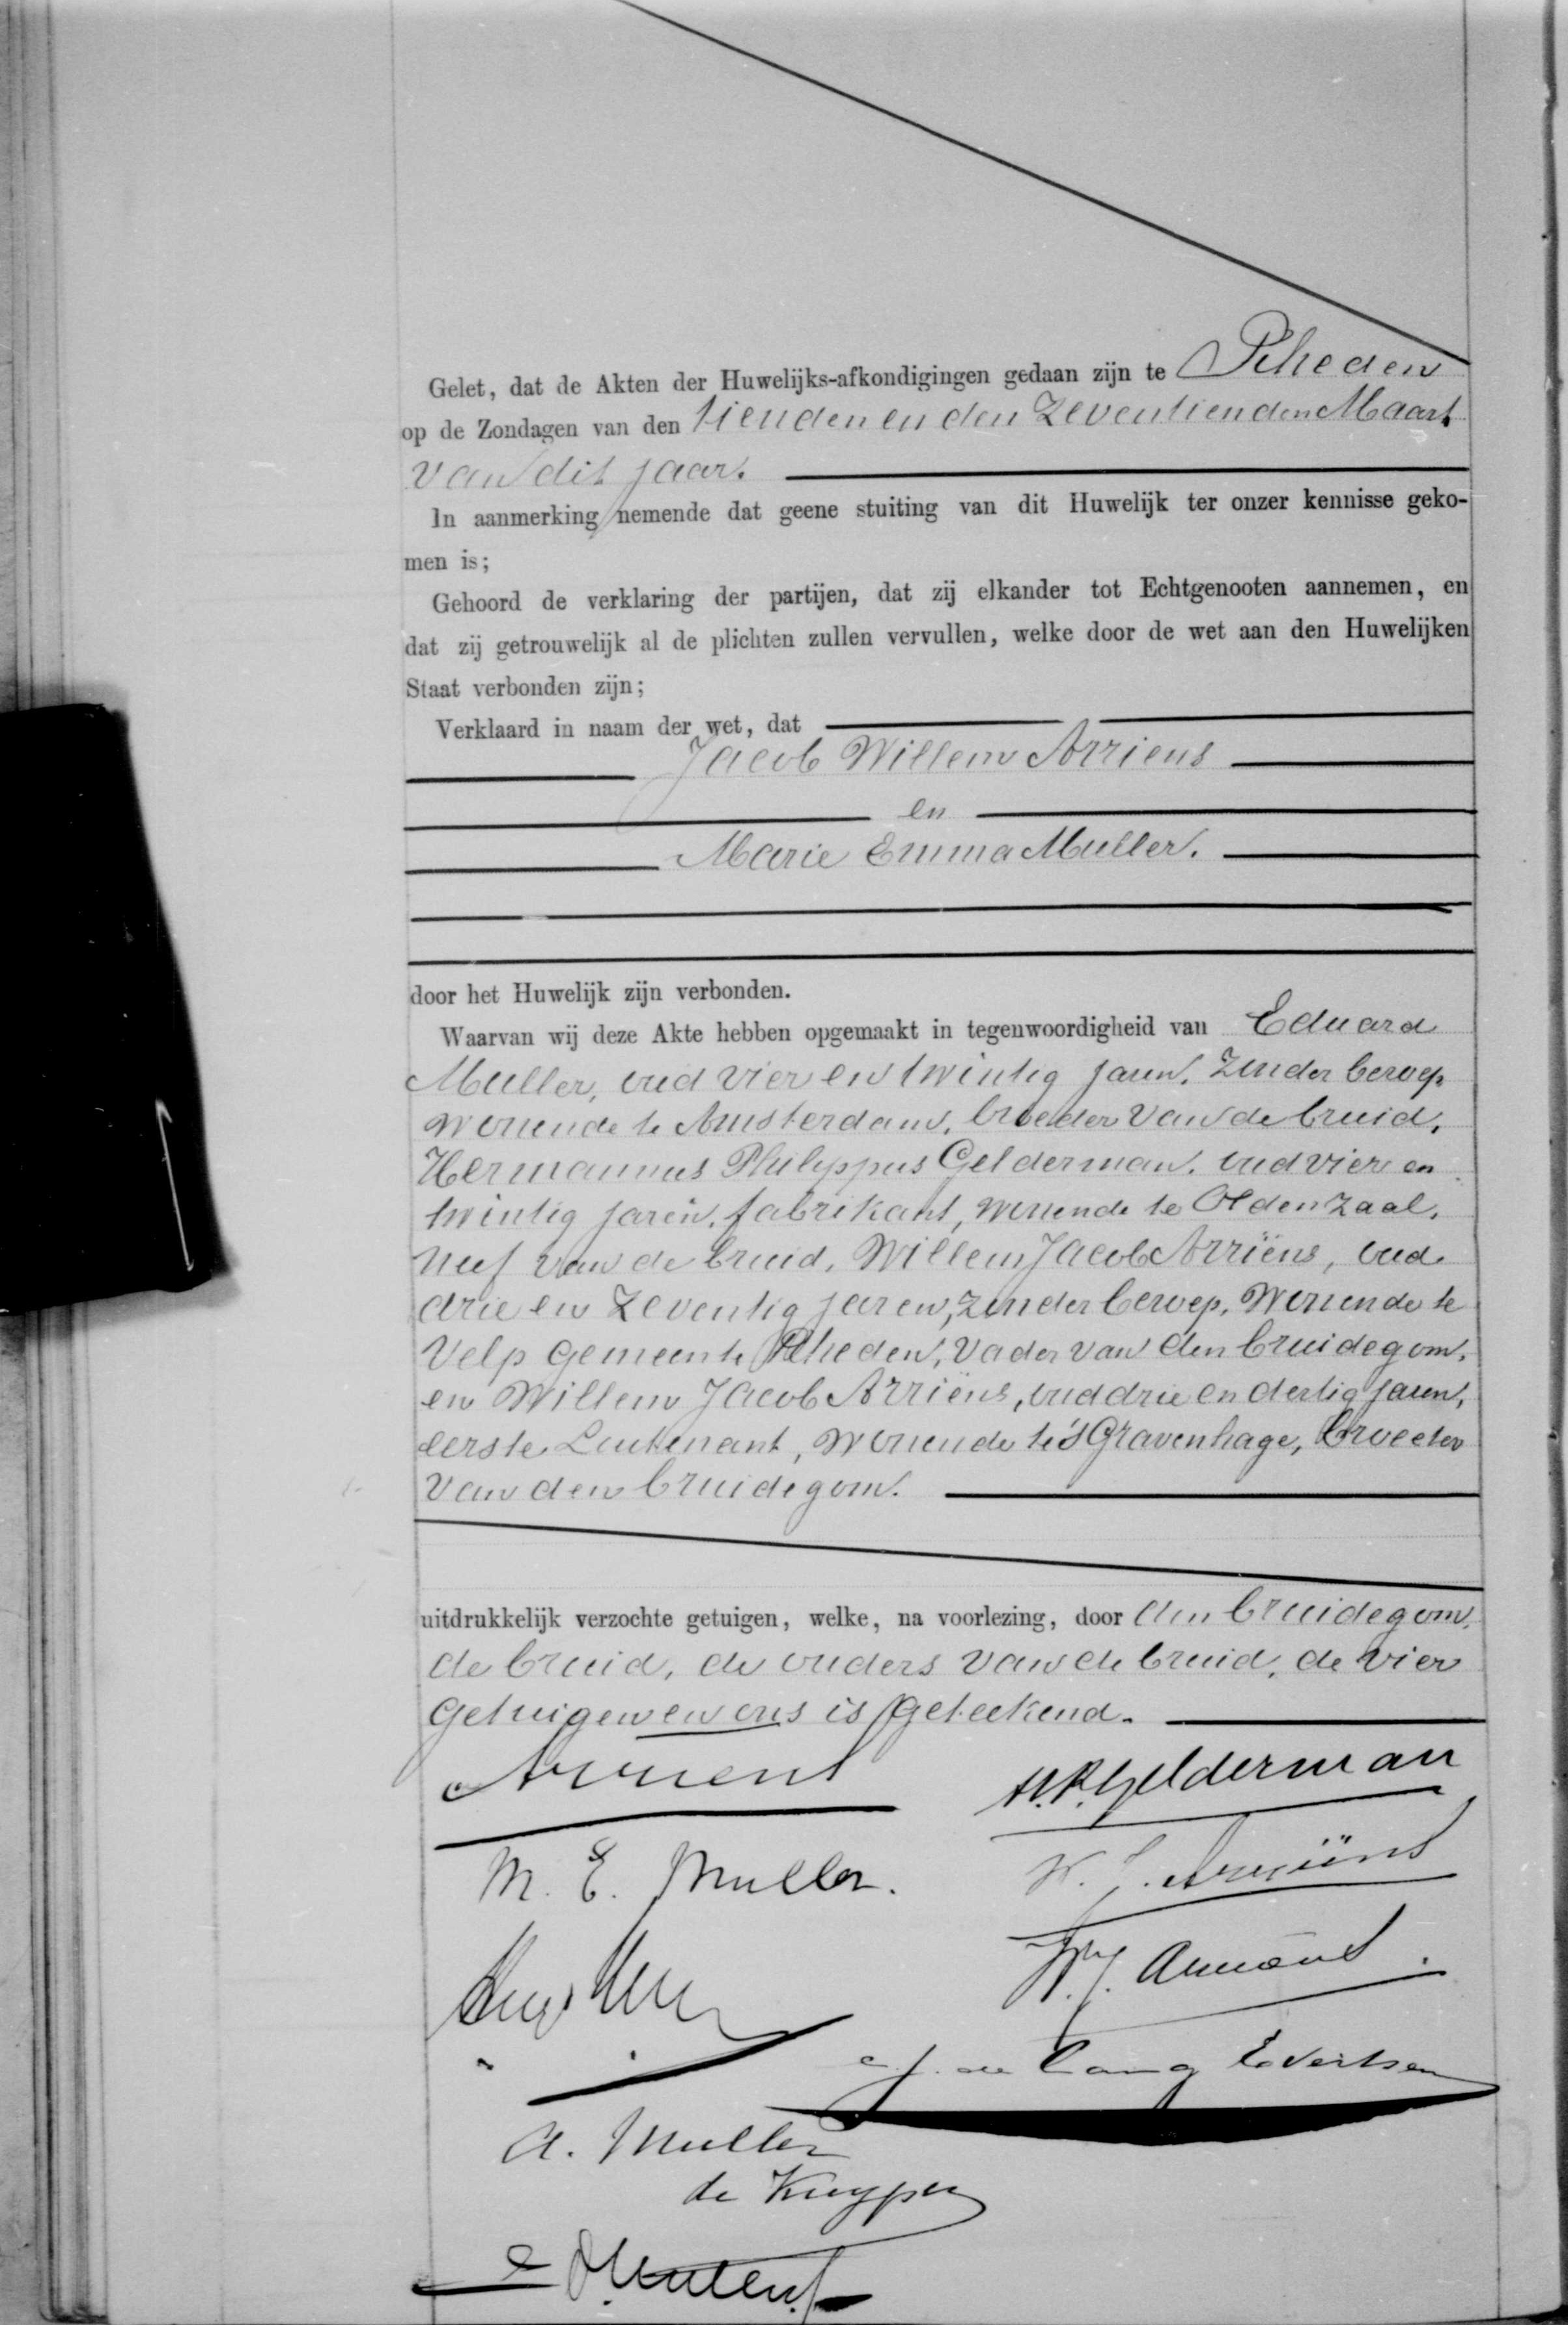 Gelet, dat de Akten der Huwelijks-afkondigingen gedaan zijn te Rheden
op de Zondagen van den tienden en den zeventienden Maart
van dit jaar.
In aanmerking nemende dat geene stuiting van dit Huwelijk ter onzer kennisse geko-
men is;
Gehoord de verklaring der partijen, dat zij elkander tot Echtgenooten aannemen, en
dat zij getrouwelijk al de plichten zullen vervullen, welke door de wet aan den Huwelijken
Staat verbonden zijn;
Verklaard in naam der wet, dat
Jacob Willem Arriens
en
Marie Emma Muller.
door het Huwelijk zijn verbonden.
Waarvan wij deze Akte hebben opgemaakt in tegenwoordigheid van Eduard
Muller, oud vier en twintig jaren, zonder beroep
wonende te Amsterdam, broeder van de bruid,
Hermannus Philippus Gelderman, oud vier en
twintig jaren, fabrikant, wonende te Oldenzaal,
neef van de bruid, Willem Jacob Arriëns, oud
drie en zeventig jaren, zonder beroep, wonende te
Velp gemeente Rheden, vader van den bruidegom,
en Willem Jacob Arriëns, oud drie en dertig jaren,
eerste Luitenant, wonende te 's Gravenhage, broeder
van den bruidegom.
uitdrukkelijk verzochte getuigen, welke, na voorlezing, door den bruidegom,
de bruid, de ouders van de bruid, de vier
getuigen en ons is geteekend.
Arriens
H.P. Gelderman
M. E. Muller.
W. J. Arriëns
W. J. Arriëns.
de Casg Evertsen
A. Muller
de Kuyper